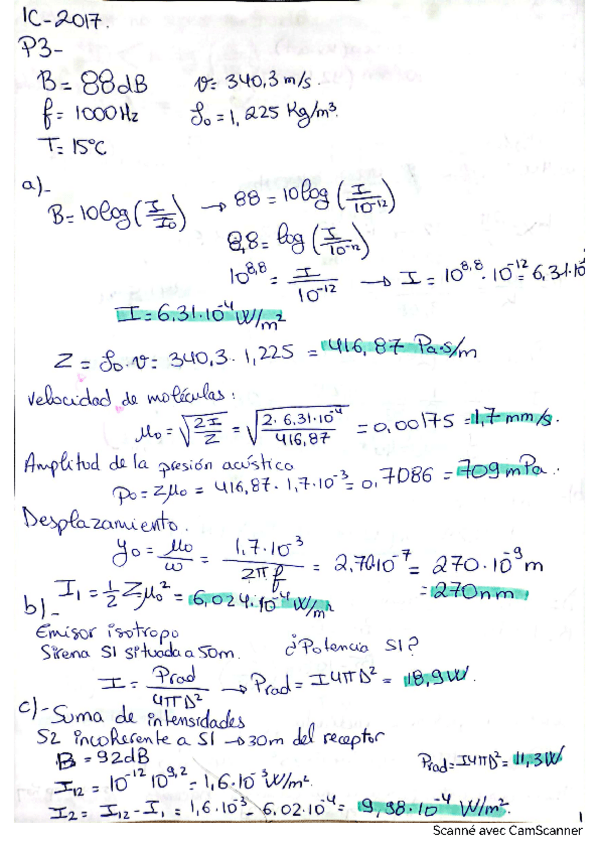 IC-2017.
P3-
B = 88dB v = 340,3 m/s.
f = 1000Hz ρ₀ = 1,225 Kg/m³.
T = 15ºC
a)-
B = 10log(I/I₀) → 88 = 10log(I/10⁻¹²)
8,8 = log(I/10⁻¹²)
10^8,8 = I/10⁻¹² → I = 10^8,8 · 10⁻¹² = 6,31·10
I = 6,31·10⁻⁴ W/m²
Z = ρ₀·v = 340,3 · 1,225 = 416,87 Pa·s/m
velocidad de moléculas:
μ₀ = √(2I/Z) = √(2·6,31·10⁻⁴/416,87) = 0,00175 = 1,7 mm/s.
Amplitud de la presión acústico
p₀ = Zμ₀ = 416,87 · 1,7·10⁻³ = 0,7086 = 709 mPa.
Desplazamiento.
y₀ = μ₀/ω = 1,7·10⁻³/2πf = 2,70·10⁻⁷ = 270·10⁻⁹ m
= 270nm
b)- I₁ = 1/2 Zμ₀² = 6,024·10⁻⁴ W/m²
Emisor isotropo
Sirena S1 situada a 50m. ¿Potencia S1?
I = Prad/4πD² → Prad = I4πD² = 18,9W.
c)- Suma de intensidades
S2 incoherente a S1 → 30m del receptor
B = 92dB Prad = I4πD² = 11,3W
I₁₂ = 10⁻¹² 10^9,2 = 1,6·10⁻³ W/m².
I₂ = I₁₂ - I₁ = 1,6·10⁻³ - 6,02·10⁻⁴ = 9,98·10⁻⁴ W/m².
1
Scanné avec CamScanner